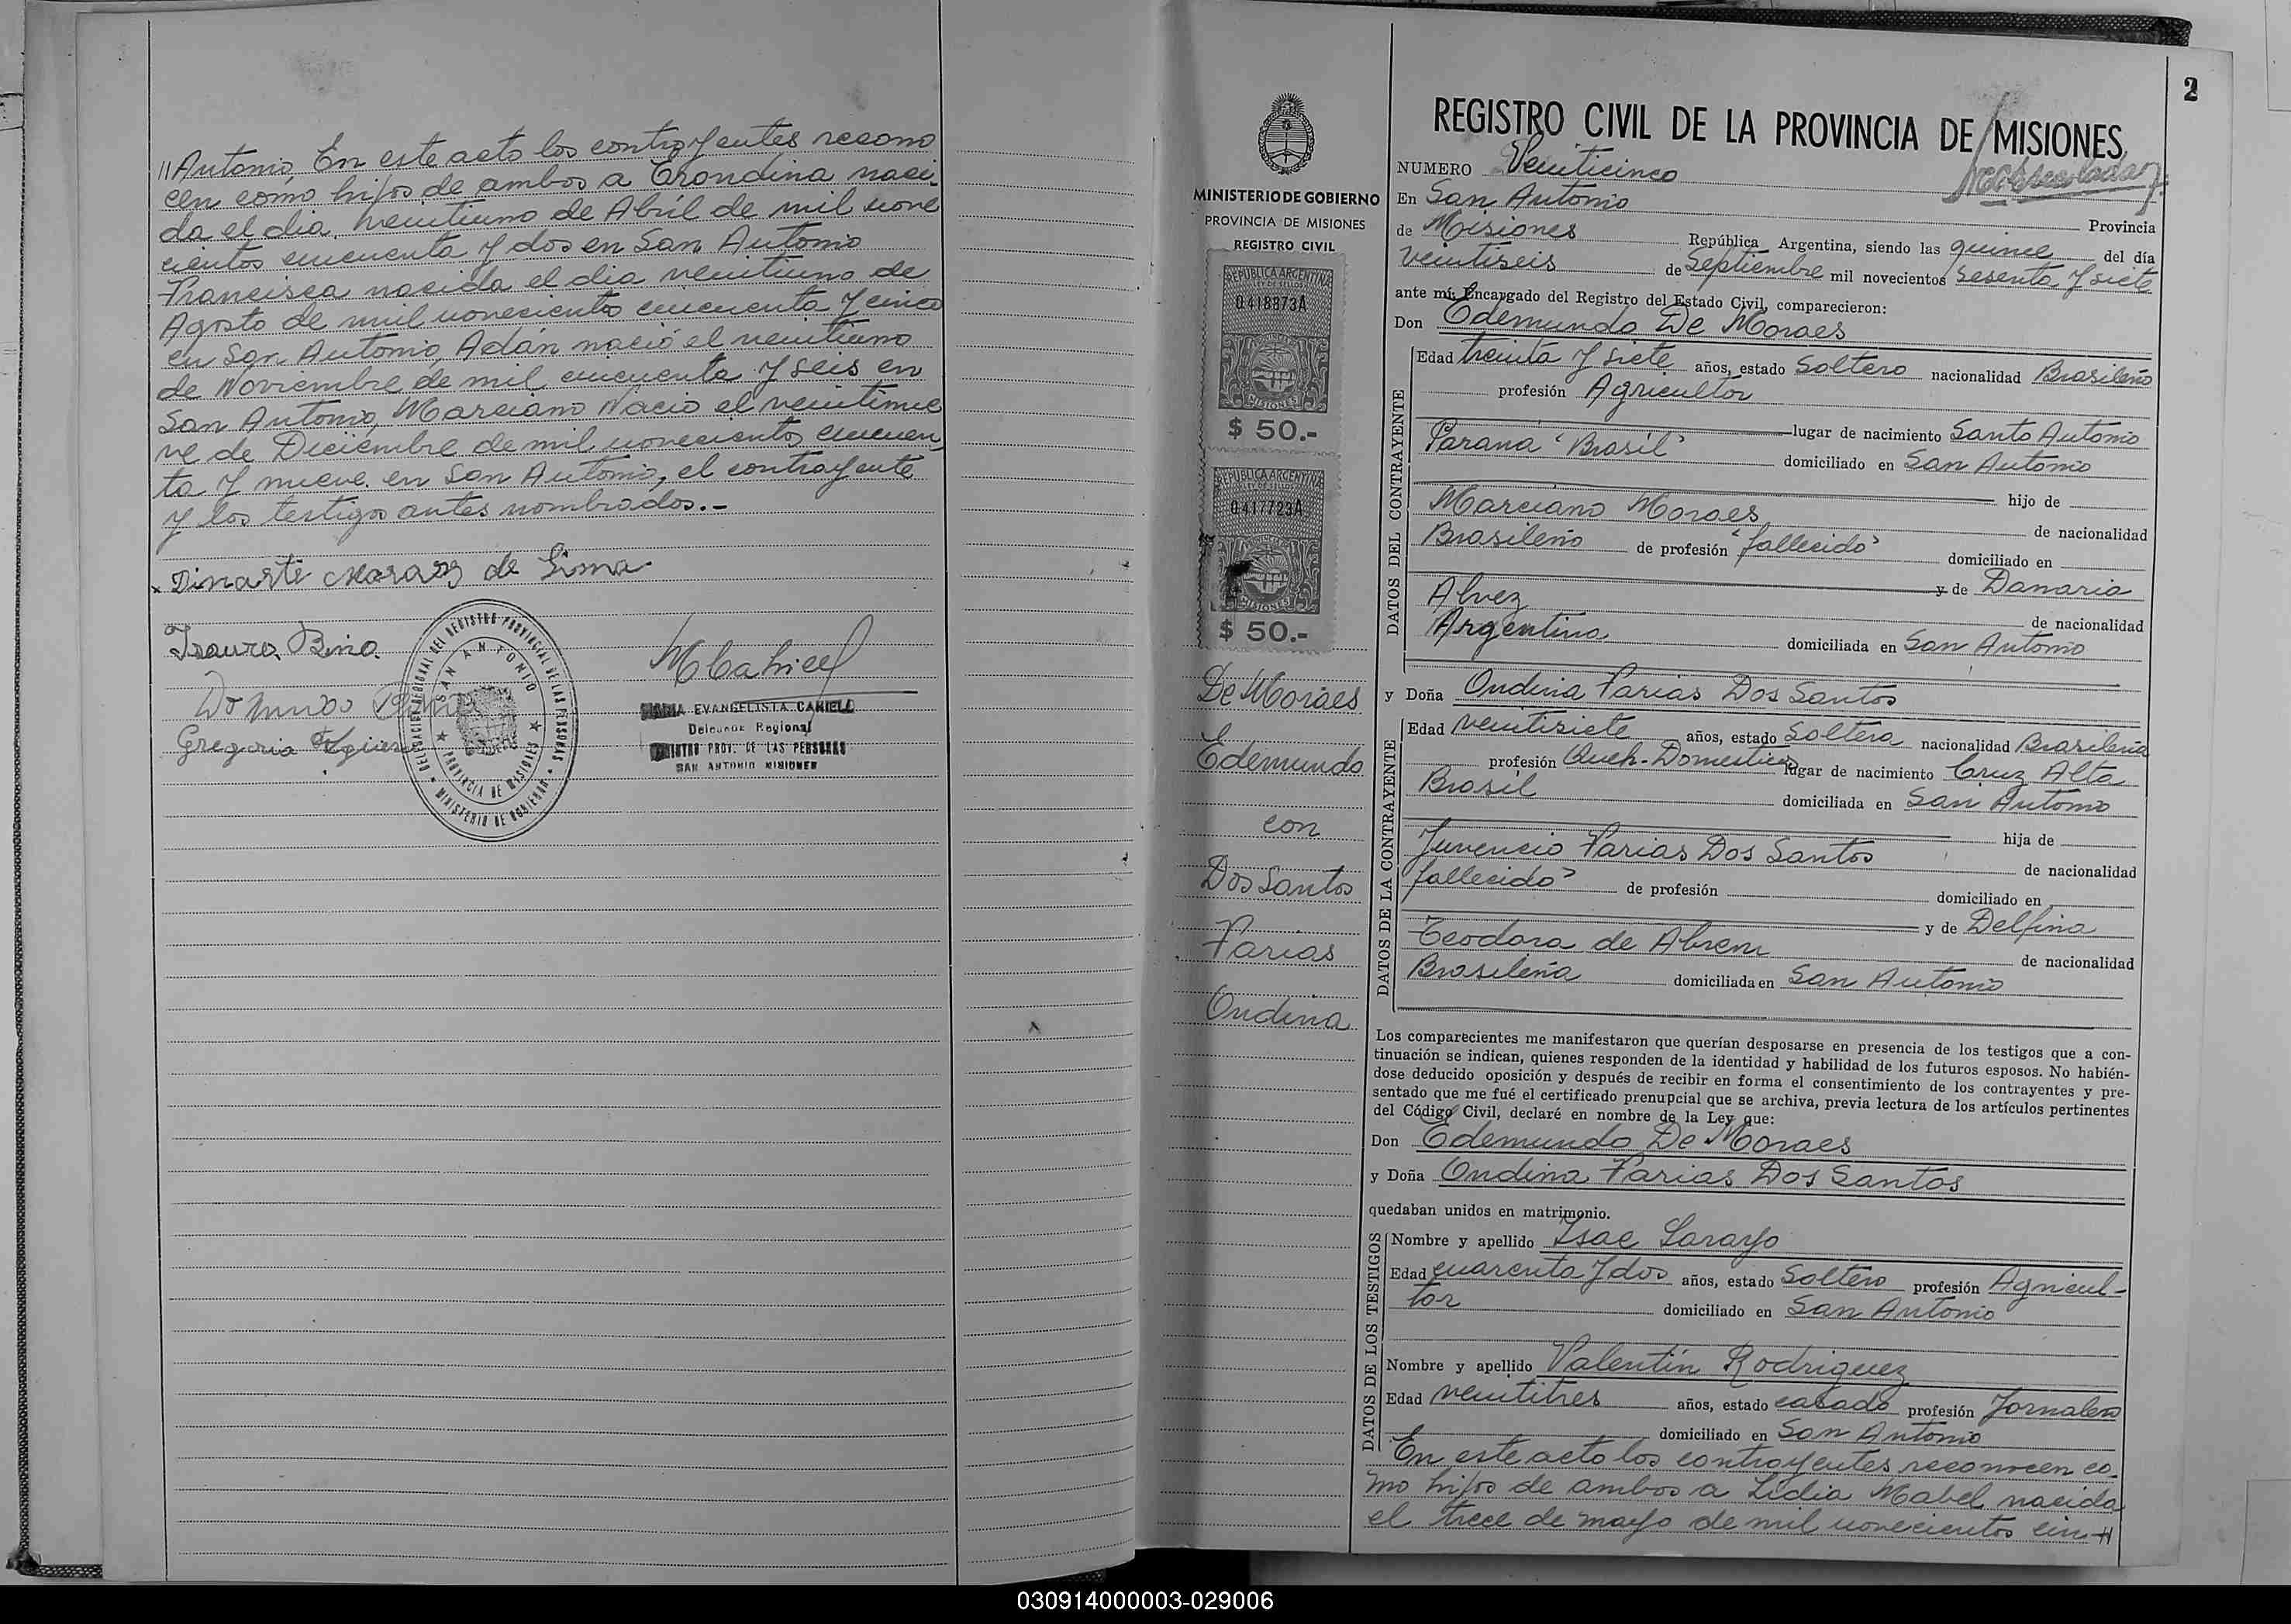 "Antonio, En este acto los contrayentes recono
cen como hijos de ambos a Erondina naci-
da el dia veintiuno de Abril de mil nove
cientos cincuenta y dos en San Antonio
Francisca nacida el dia veintiuno de
Agosto de mil novecientos cincuenta y cinco
en San Antonio, Adán nació el veintiuno
de Noviembre de mil cincuenta y seis en
San Antonio, Marciano Nacio el veintinue
ve de Diciembre de mil novecientos cincuen
ta y nueve en San Antonio, el contrayente
y los testigos antes nombrados.-
x Dinarte Moraes de Lima
Isauro Bino
Gregoria
DELEGACION REGIONAL DEL REGISTRO PROVINCIAL DE LAS PERSONAS
SAN ANTONIO
PROVINCIA DE MISIONES
MINISTERIO DE GOBIERNO
MCahiell
MARIA EVANGELISTA CAHIELL
Delegado Regional
REGISTRO PROV. DE LAS PERSONAS
SAN ANTONIO MISIONES
2
MINISTERIO DE GOBIERNO
PROVINCIA DE MISIONES
REGISTRO CIVIL
REPUBLICA ARGENTINA
LEY DE SELLOS
0418873A
MISIONES
$ 50.-
REPUBLICA ARGENTINA
LEY DE SELLOS
0417723A
MISIONES
$ 50.-
De Moraes
Edemundo
con
Dos Santos
Farias
Ondina
REGISTRO CIVIL DE LA PROVINCIA DE MISIONES
NUMERO Veinticinco
En San Antonio Provincia
de Misiones República Argentina, siendo las quince del día
veintiseis de Septiembre mil novecientos sesenta y siete
ante mí: Encargado del Registro del Estado Civil, comparecieron:
Don Edemundo De Moraes
DATOS DEL CONTRAYENTE
Edad treinta y siete años, estado Soltero nacionalidad Brasileño
profesión Agricultor
lugar de nacimiento Santo Antonio
Parana "Brasil" domiciliado en San Antonio
hijo de
Marciano Moraes de nacionalidad
Brasileño de profesión "fallecido" domiciliado en
y de Danaria
Alvez de nacionalidad
Argentina domiciliada en San Antonio
y Doña Ondina Farias Dos Santos
DATOS DE LA CONTRAYENTE
Edad veintisiete años, estado Soltera nacionalidad Brasileña
profesión Queh-Domesticos lugar de nacimiento Cruz Alta
Brasil domiciliada en San Antonio
hija de
Juvencio Farias Dos Santos de nacionalidad
"fallecido" de profesión domiciliado en
y de Delfina
Teodora de Abreu de nacionalidad
Brasileña domiciliada en San Antonio
Los comparecientes me manifestaron que querían desposarse en presencia de los testigos que a con-
tinuación se indican, quienes responden de la identidad y habilidad de los futuros esposos. No habién-
dose deducido oposición y después de recibir en forma el consentimiento de los contrayentes y pre-
sentado que me fué el certificado prenupcial que se archiva, previa lectura de los artículos pertinentes
del Código Civil, declaré en nombre de la Ley que:
Don Edemundo De Moraes
y Doña Ondina Farias Dos Santos
quedaban unidos en matrimonio.
DATOS DE LOS TESTIGOS
Nombre y apellido Isac Sarayo
Edad cuarenta y dos años, estado Soltero profesión Agricul-
tor domiciliado en San Antonio
Nombre y apellido Valentín Rodriguez
Edad veintitres años, estado casado profesión Jornalero
domiciliado en San Antonio
En este acto los contrayentes reconocen co-
mo hijos de ambos a Lidia Mabel nacida
el trece de mayo de mil novecientos cin-//
030914000003-029006